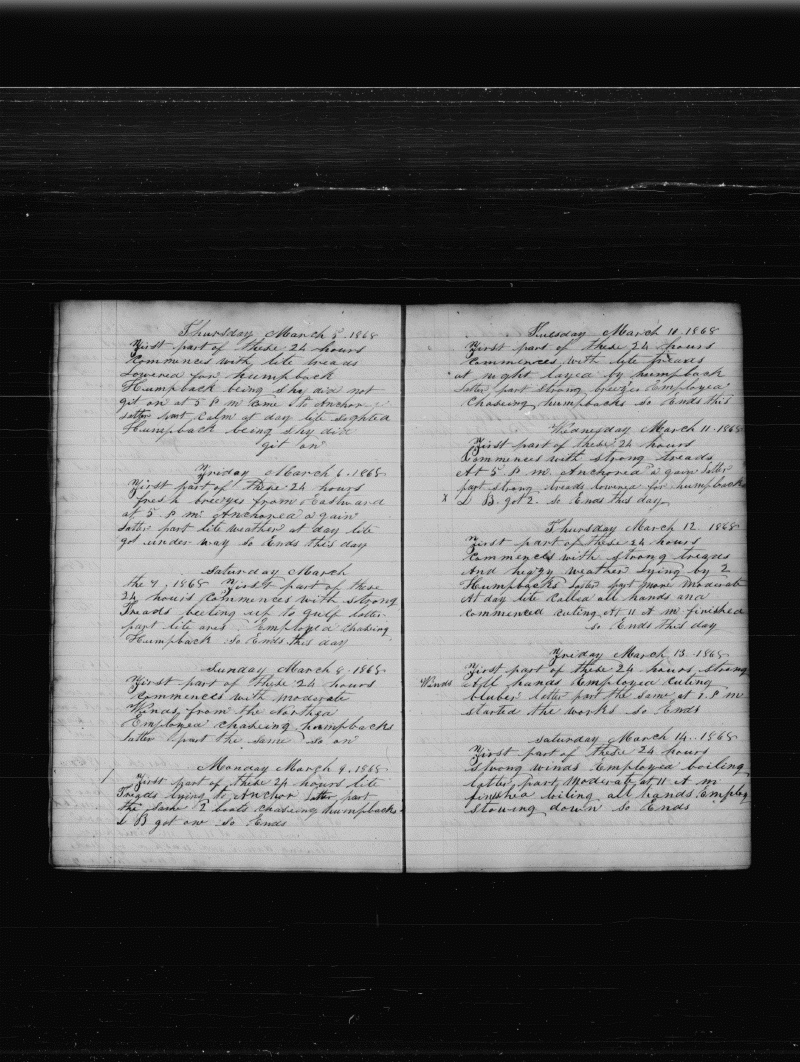 Thursday March 5. 1868
First part of these 24 hours
Commences with lite treads
Lowered for humpback
Humpback being shy did not
git on at 5 P m Came to Anchor
latter part Calm at day lite sighted
Humpback being shy did
git on
Friday March 6. 1868
First part of these 24 hours
fresh breezes from Eastward
at 5 P m. Anchored a gain
latter part lite weather at day lite
got under way so Ends this day
Saturday March
the 7, 1868 First part of these
24 hours Commences with strong
Treads beeting up to gulf latter
part lite airs Employed chasing
Humpback so Ends this day
Sunday March 8. 1868
First part of these 24 hours
Commences with moderate
Winds from the
Employed chaseing humpbacks
latter part the same so on
Monday March 9. 1868
First part of these 24 hours lite
Treads lying to Anchor latter part
the same 2 boats chaseing humpbacks
L B got one so Ends
Tuesday March 10. 1868
First part of these 24 hours
Commences with lite treads
at night layed by humpback
latter part strong breezes Employed
Chaseing humpbacks so Ends this
Wednesday March 11. 1868
First part of these 24 hours
Commences with strong treads
At 5 P m. Anchored a gain latter
part strong treads lowered for humpbacks
x L B. got 2. so Ends this day
Thursday March 12 1868
First part of these 24 hours
Commences with strong treads
And heavy weather lying by 2
Humpbacks latter part more Moderate
At day lite Called all hands and
commenced cuting At 11 A m finished
so Ends this day
Friday March 13. 1868
First part of these 24 hours strong
Winds All hands Employed cuting
bluber latter part the same at 1 P m
started the works so Ends
Saturday March 14. 1868
First part of these 24 hours
strong winds Employed boiling
latter part Moderate at 11 A m
finshed boiling all hands Employ
stowing down so Ends